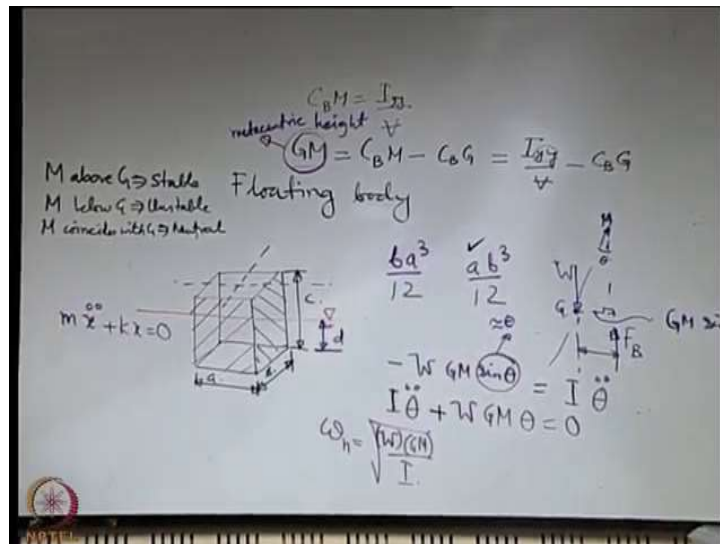 C_B M = I_yy / ∀
metacentric height
GM = C_B M - C_B G = I_yy / ∀ - C_B G
M above G ⇒ Stable
M below G ⇒ Unstable
M coincides with G ⇒ Neutral
Floating body
ba³ / 12
✓ ab³ / 12
M
θ
W
G
GM si
F_B
c
d
a
b
mẍ + kx = 0
≈θ
- W GM sinθ = I θ̈
I θ̈ + W GM θ = 0
ω_n = √((W)(GM) / I)
NPTEL